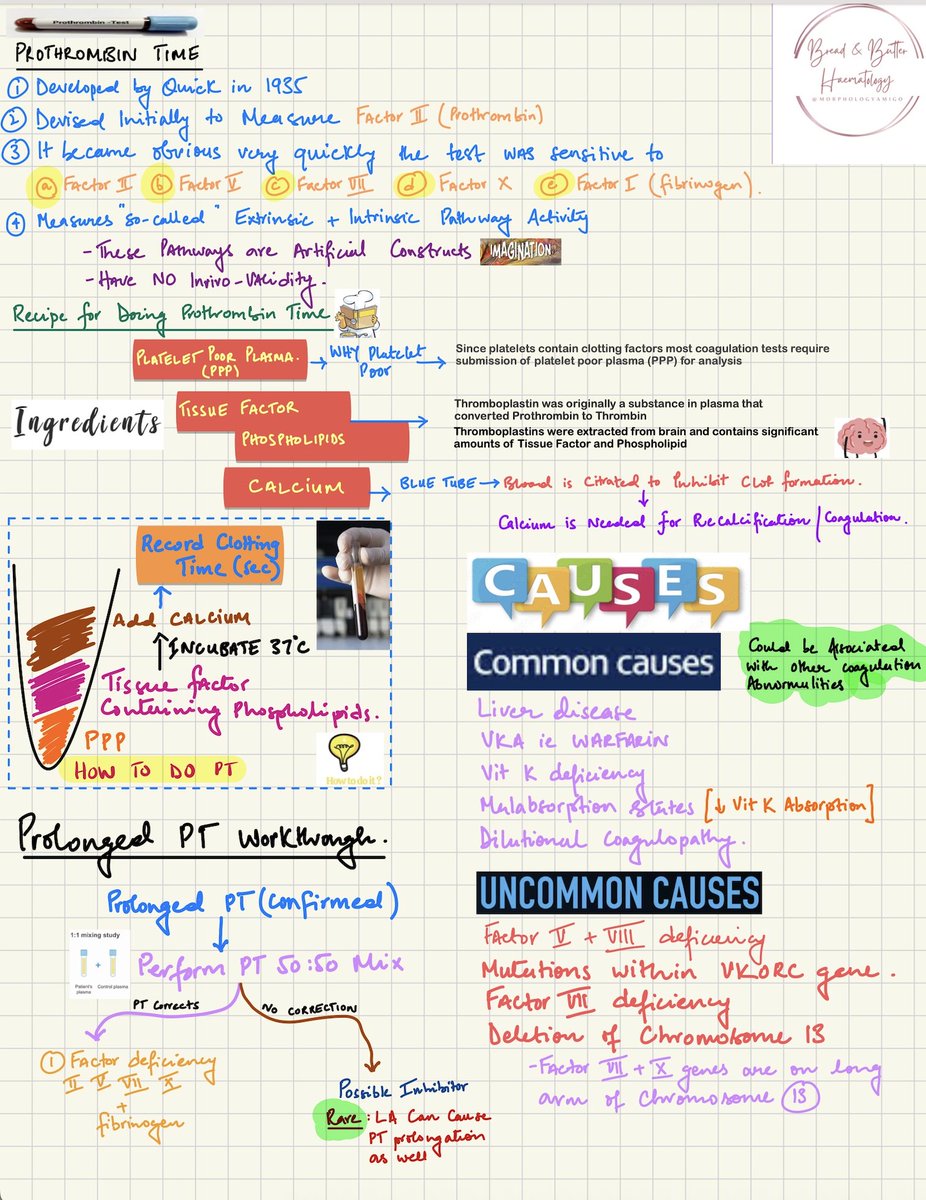 Prothrombin - Test
PROTHROMBIN TIME
Bread & Butter
Haematology
@MORPHOLOGYAMIGO
① Developed by Quick in 1935
② Devised Initially to Measure Factor II (Prothrombin)
③ It became obvious very quickly the test was sensitive to
ⓐ Factor II ⓑ Factor V ⓒ Factor VII ⓓ Factor X ⓔ Factor I (fibrinogen).
④ Measures "so-called" Extrinsic + Intrinsic Pathway Activity
- These Pathways are Artificial Constructs IMAGINATION
- Have NO Invivo-Validity.
Recipe for Doing Prothrombin Time
PLATELET POOR PLASMA.
(PPP)
WHY Platelet
Poor
Since platelets contain clotting factors most coagulation tests require
submission of platelet poor plasma (PPP) for analysis
Ingredients
TISSUE FACTOR
PHOSPHOLIPIDS
Thromboplastin was originally a substance in plasma that
converted Prothrombin to Thrombin
Thromboplastins were extracted from brain and contains significant
amounts of Tissue Factor and Phospholipid
CALCIUM
BLUE TUBE → Blood is Citrated to Inhibit Clot formation.
Calcium is Needed for Recalcification / Coagulation.
Record Clotting
Time (sec)
Add CALCIUM
INCUBATE 37°C
Tissue factor
Containing Phospholipids.
PPP
HOW TO DO PT
How to do it ?
CAUSES
Common causes
Could be Associated
with other coagulation
Abnormalities
Liver disease
VKA ie WARFARIN
Vit K deficiency
Malabsorption states [↓ Vit K Absorption]
Dilutional Coagulopathy.
UNCOMMON CAUSES
Factor V + VIII deficiency
Mutations within VKORC gene.
Factor VII deficiency
Deletion of Chromosome 13
- Factor VII + X genes are on long
arm of Chromosome 13
Prolonged PT Workthrough.
Prolonged PT (Confirmed)
1:1 mixing study
+
Patient's
plasma
Control plasma
Perform PT 50:50 Mix
PT Corrects
No CORRECTION
① Factor deficiency
II V VII X
+
fibrinogen
Possible Inhibitor
Rare : LA Can Cause
PT prolongation
as well